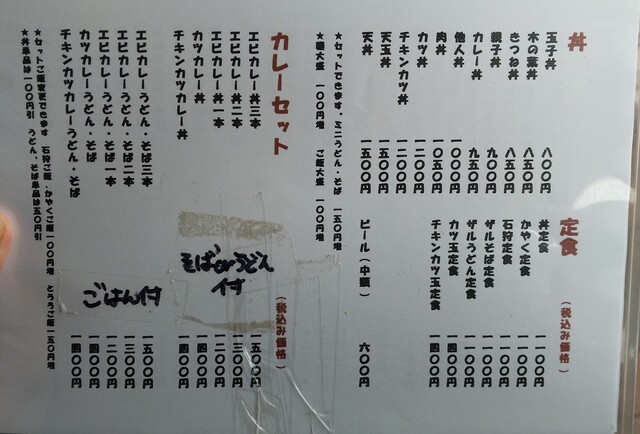 丼
玉子丼 八〇〇円
木の葉丼 八五〇円
きつね丼 八五〇円
親子丼 九〇〇円
カレー丼 九五〇円
他人丼 一〇〇〇円
肉丼 一〇五〇円
カツ丼 一二〇〇円
チキンカツ丼 一二〇〇円
天玉丼 一五〇〇円
天丼 一五〇〇円
定食 (税込み価格)
丼定食 一一〇〇円
かやく定食 一一〇〇円
石狩定食 一一〇〇円
ザルそば定食 一一〇〇円
ザルうどん定食 一一〇〇円
カツ玉定食 一四〇〇円
チキンカツ玉定食 一四〇〇円
ビール(中瓶) 六〇〇円
★セットできます、ミニうどん・そば 一五〇円増
★麺大盛 一〇〇円増 ご飯大盛 一〇〇円増
カレーセット (税込み価格)
エビカレー丼三本 一五〇〇円
エビカレー丼二本 一三〇〇円
エビカレー丼一本 一二〇〇円
カツカレー丼 一四〇〇円
チキンカツカレー丼 一四〇〇円
そばorうどん
付
エビカレーうどん・そば三本 一五〇〇円
エビカレーうどん・そば二本 一三〇〇円
エビカレーうどん・そば一本 一二〇〇円
カツカレーうどん・そば 一四〇〇円
チキンカツカレーうどん・そば 一四〇〇円
ごはん付
★セットご飯変更できます 石狩ご飯・かやくご飯一〇〇円増 とろろご飯一五〇円増
★丼単品は一〇〇円引 うどん、そば単品は五〇円引